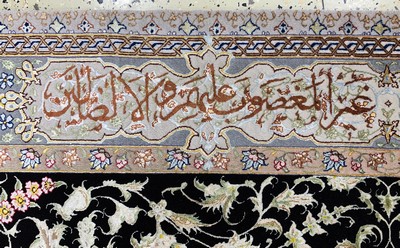 غير المغضوب عليهم ولا الضالين